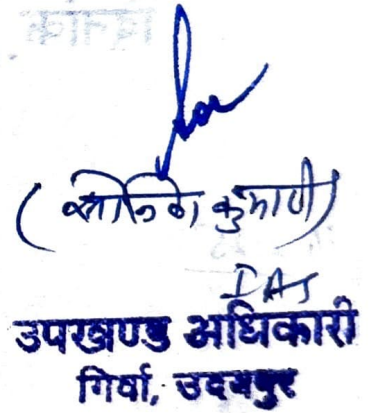 कुमारी)
IAS
उपखण्ड अधिकारी
गिर्वा, उदयपुर